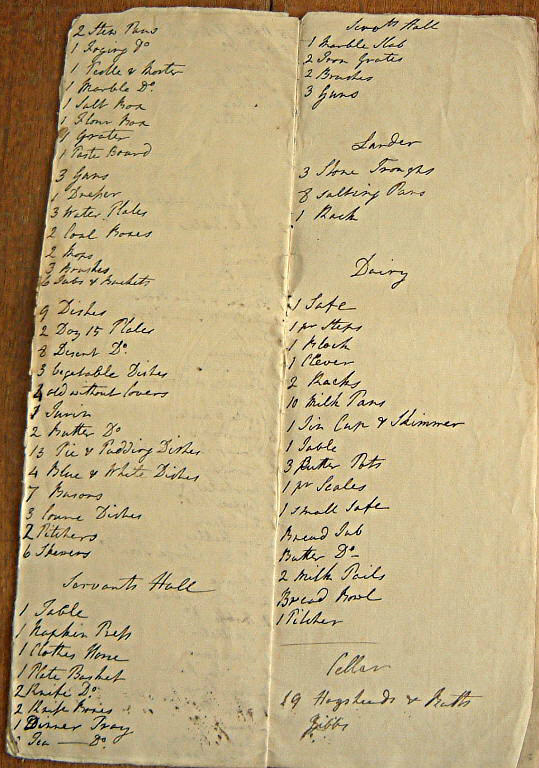 2 Stew Pans
1 Frying Do
1 Pestle & Morter
1 Marble Do
1 Salt Box
1 Flour Box
1 Grater
1 Paste Board
3 Guns
1 Draper
3 Water Plates
2 Coal Boxes
2 Mops
3 Brushes
6 Tubs & Buckets
9 Dishes
2 Doz 15 Plates
8 Desert Do
3 Vegetable Dishes
4 old without Covers
1 Tureen
2 Butter Do
13 Pie & Pudding Dishes
4 Blue & White Dishes
7 Basons
3 Dishes
2 Pitchers
6 Skevers
Servants Hall
1 Table
1 Napkin Press
1 Clothes Horse
1 Plate Basket
2 Knife Do
2 Knife Boxes
1 Dinner Tray
Tea — Do
Servts Hall
1 Marble Slab
2 Iron Grates
2 Brushes
3 Guns
Larder
3 Stone Troughs
8 Salting Pans
1 Rack
Dairy
1 Safe
1 pr Steps
1 Block
1 Clever
2 Racks
10 Milk Pans
1 Tin Cup & Skimmer
1 Table
3 Butter Pots
1 pr Scales
1 small Safe
Bread Tub
Butter Do
2 Milk Pails
Bread Bowl
1 Pitcher
Cellar
19 Hogsheads & Butts
Gibbs